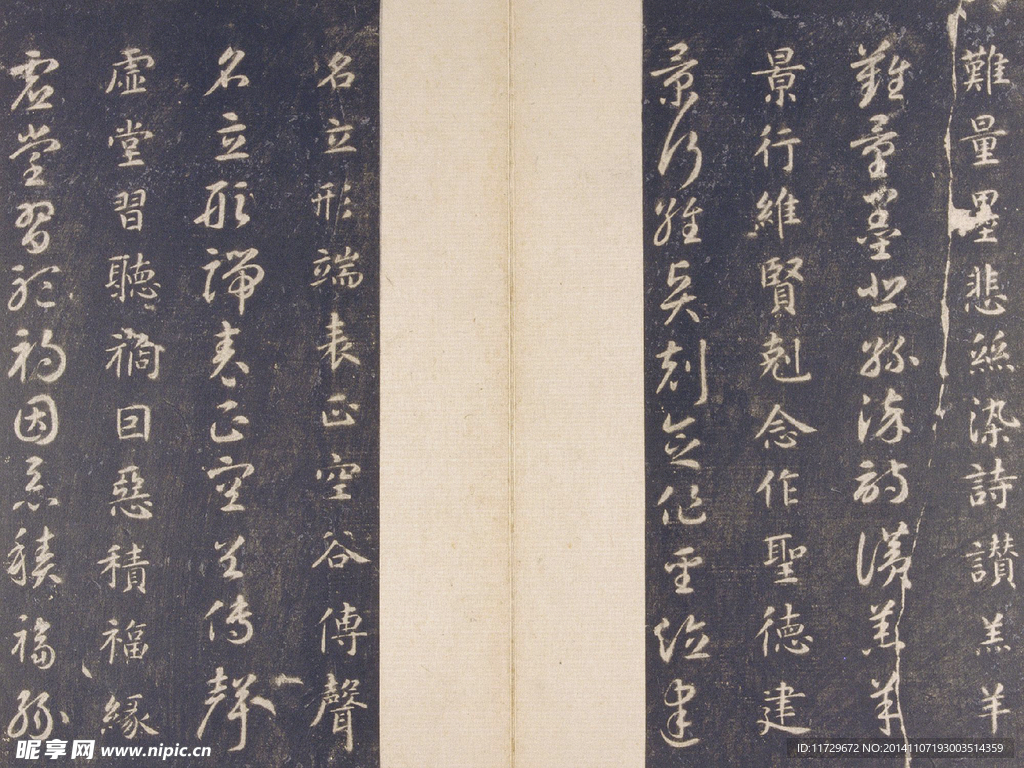 難量墨悲絲染詩讃羔羊
難量墨悲絲染詩讃羔羊
景行維賢剋念作聖德建
景行維賢剋念作聖德建
名立形端表正空谷傳聲
名立形端表正空谷傳聲
虛堂習聽禍因惡積福緣
虛堂習聽禍因惡積福緣
昵享网 www.nipic.cn
ID:11729672 NO:20141107193003514359